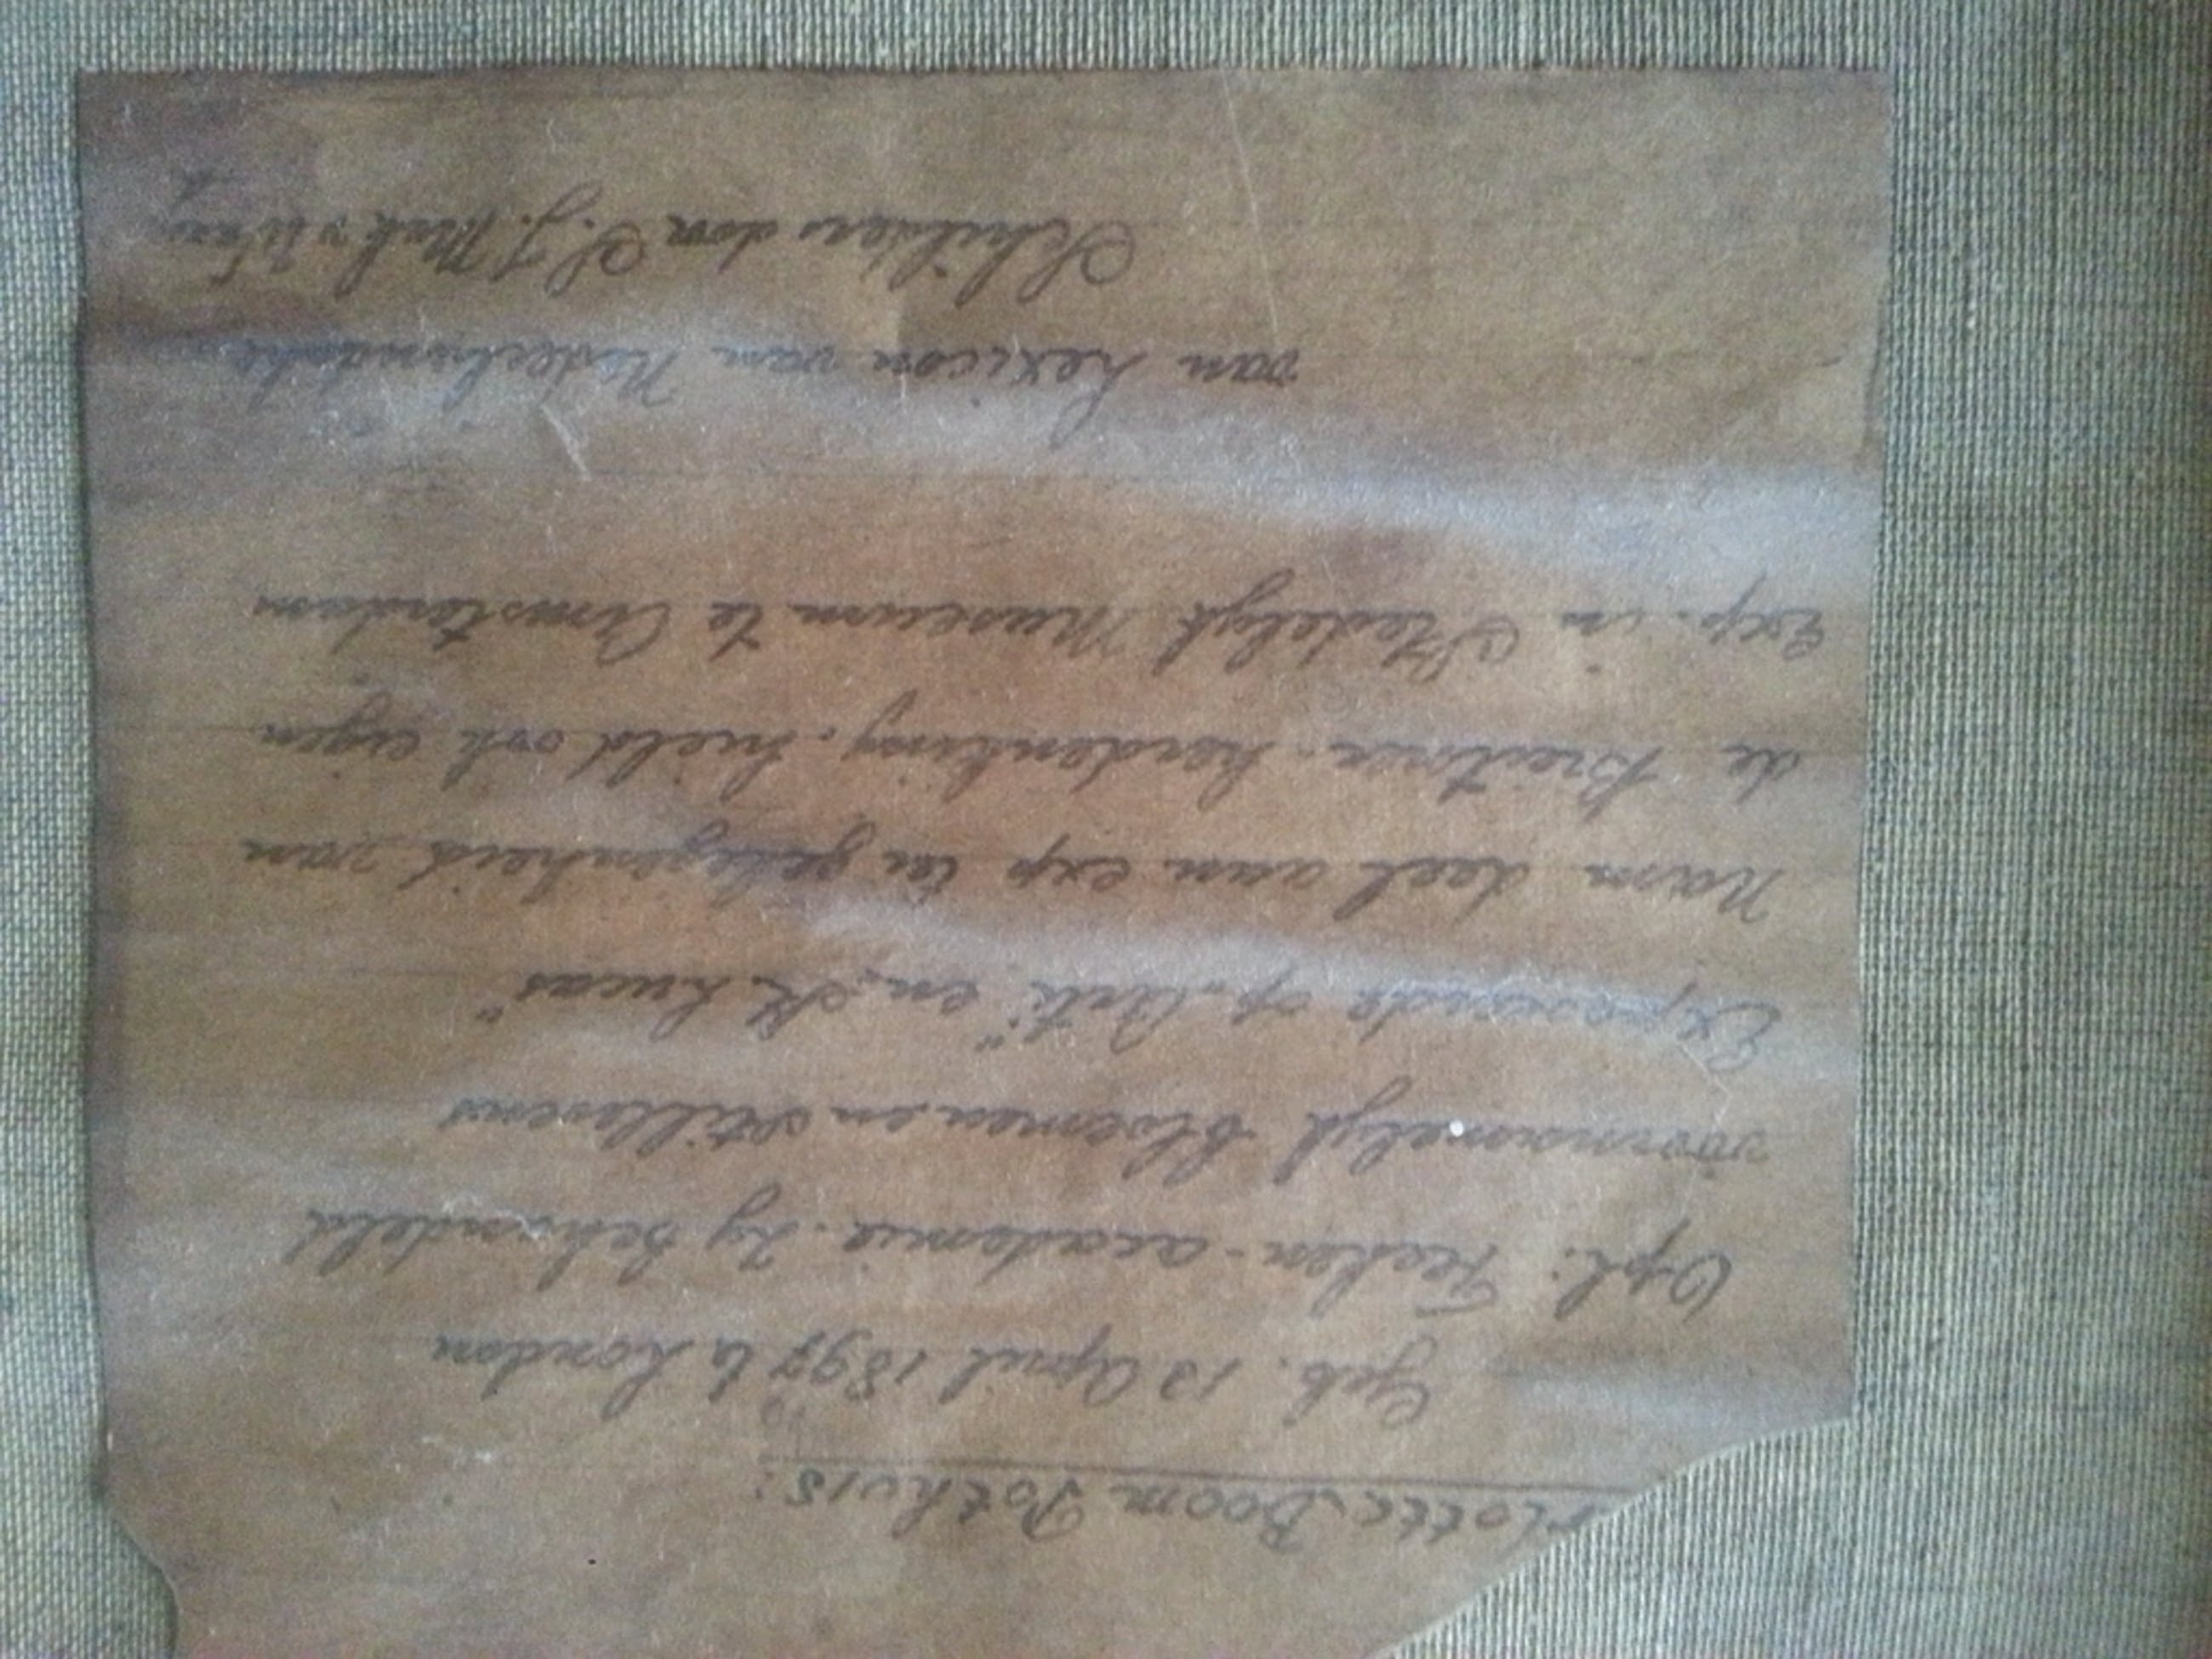 rlotte Boom Pothuis:
Geb. 13 April 1897 te London
Opl: Teeken-academie. Zy behandeld
voornamelyk bloemen en stillevens
Exposeerde op "Arti" en "St Lucas"
Nam deel aan exp ter gelegenheid van
de Breitner-herdenking. hield ook eigen
exp. in Stedelyk Museum te Amsterdam
van Lexicon van Nederlandse
Schilders don P.J. Mak v Waay